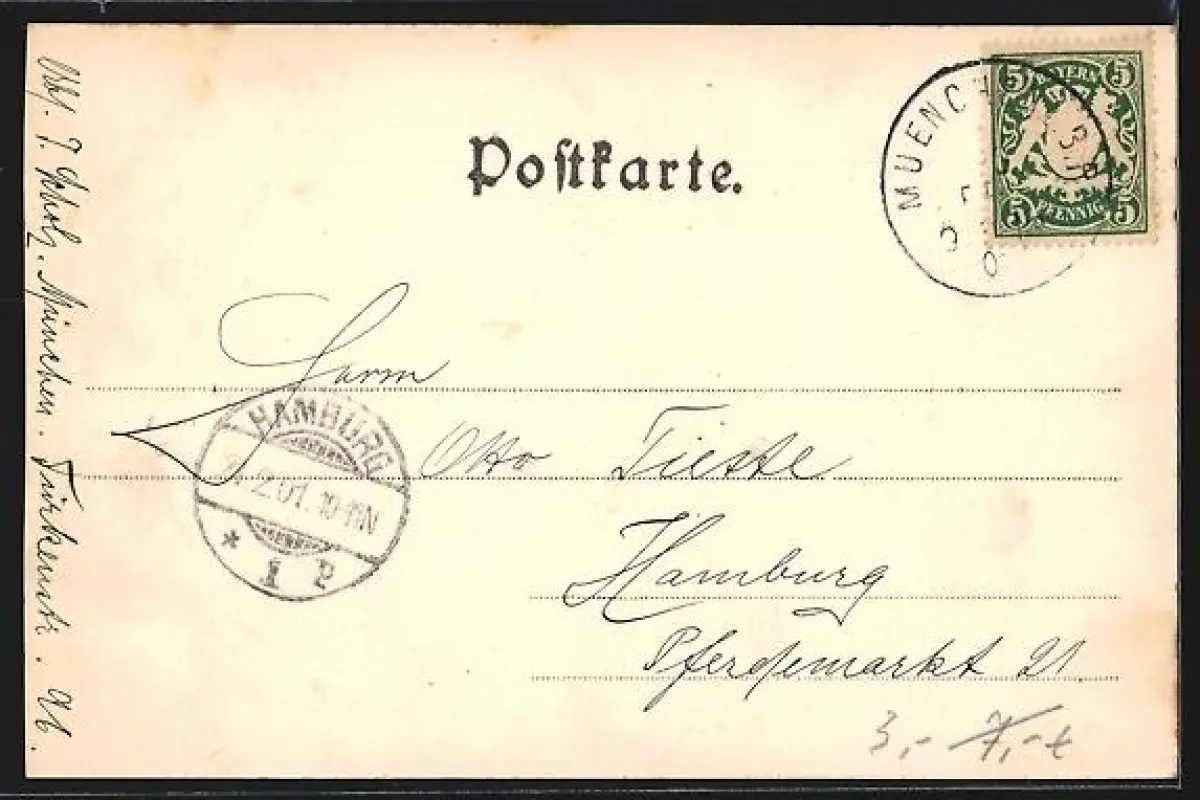 Postkarte.
5 BAYERN 5
5 PFENNIG 5
MUENCH B.P.
Herrn
Otto Tieste
Hamburg
Pferdemarkt 21.
HAMBURG
2.01. 10-11N
* 1 P
3,- 7,-
Abs. J. Scholz. München. Türkenstr. 96.